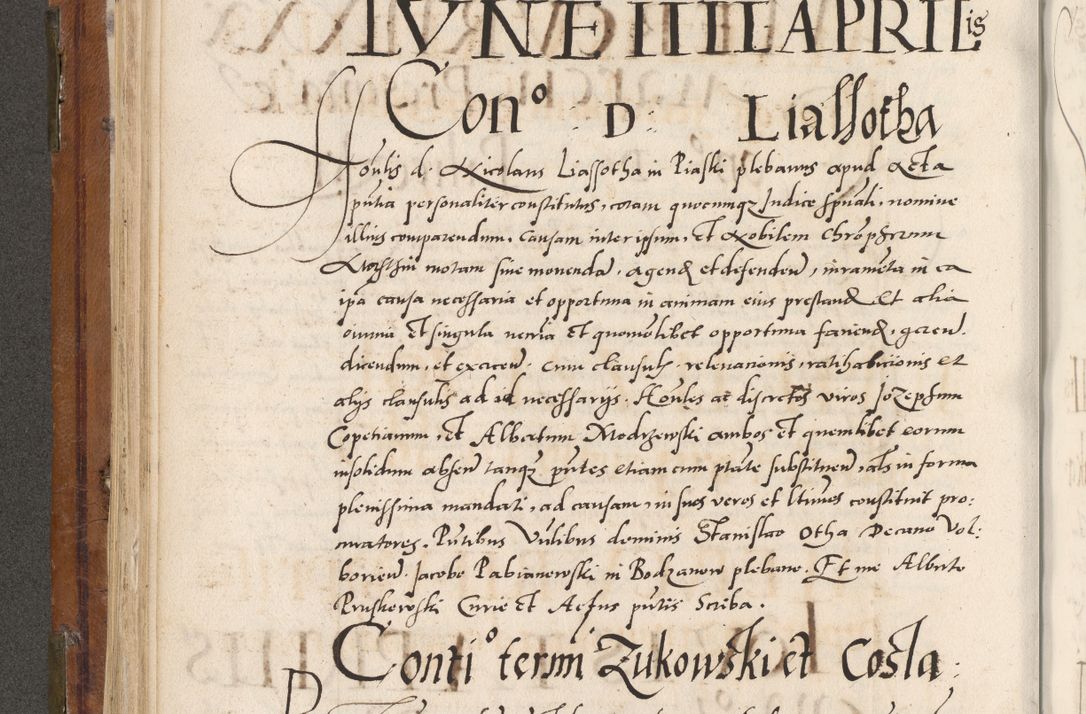 LVNE IIII APRILis
Con.o D: Liassotha
Honlis d. Nicolaus Liassotha in Piaski plebanus apud Acta
pntia personaliter constitutus, coram quocumq Judice spuali, nomine
illius comparendum, causam inter ipsum, et Nobilem Chropherum
motam sive movenda, agend et defenden, in ea
ipa causa necessaria et opportuna in animam eius prestand et alia
omnia et singula necria et quomolibet opportuna faciend, geren.
dicendum, et exercen. cum clausul. relevacionis, ratihabicionis et
alijs clausulis ad id necessarijs. Honles ac discretos viros Jozephum
Copetianum, et Albertum Modrzewski ambos et quemlibet eorum
insolidum absen tanq pntes etiam cum ptate substituen, als in forma
plenissima mandati, ad causam, in suos veros et ltimos constituit pro:
curatores. Pntibus Vnlibus dominis Stanislao Otha Decano Vol:
borien. Jacobo Pabianowski in Bodzanow plebano. Et me Alberto
Pruskowski Curie et Actus pntis Scriba.
Conti.o termi Zukowski et Costa.